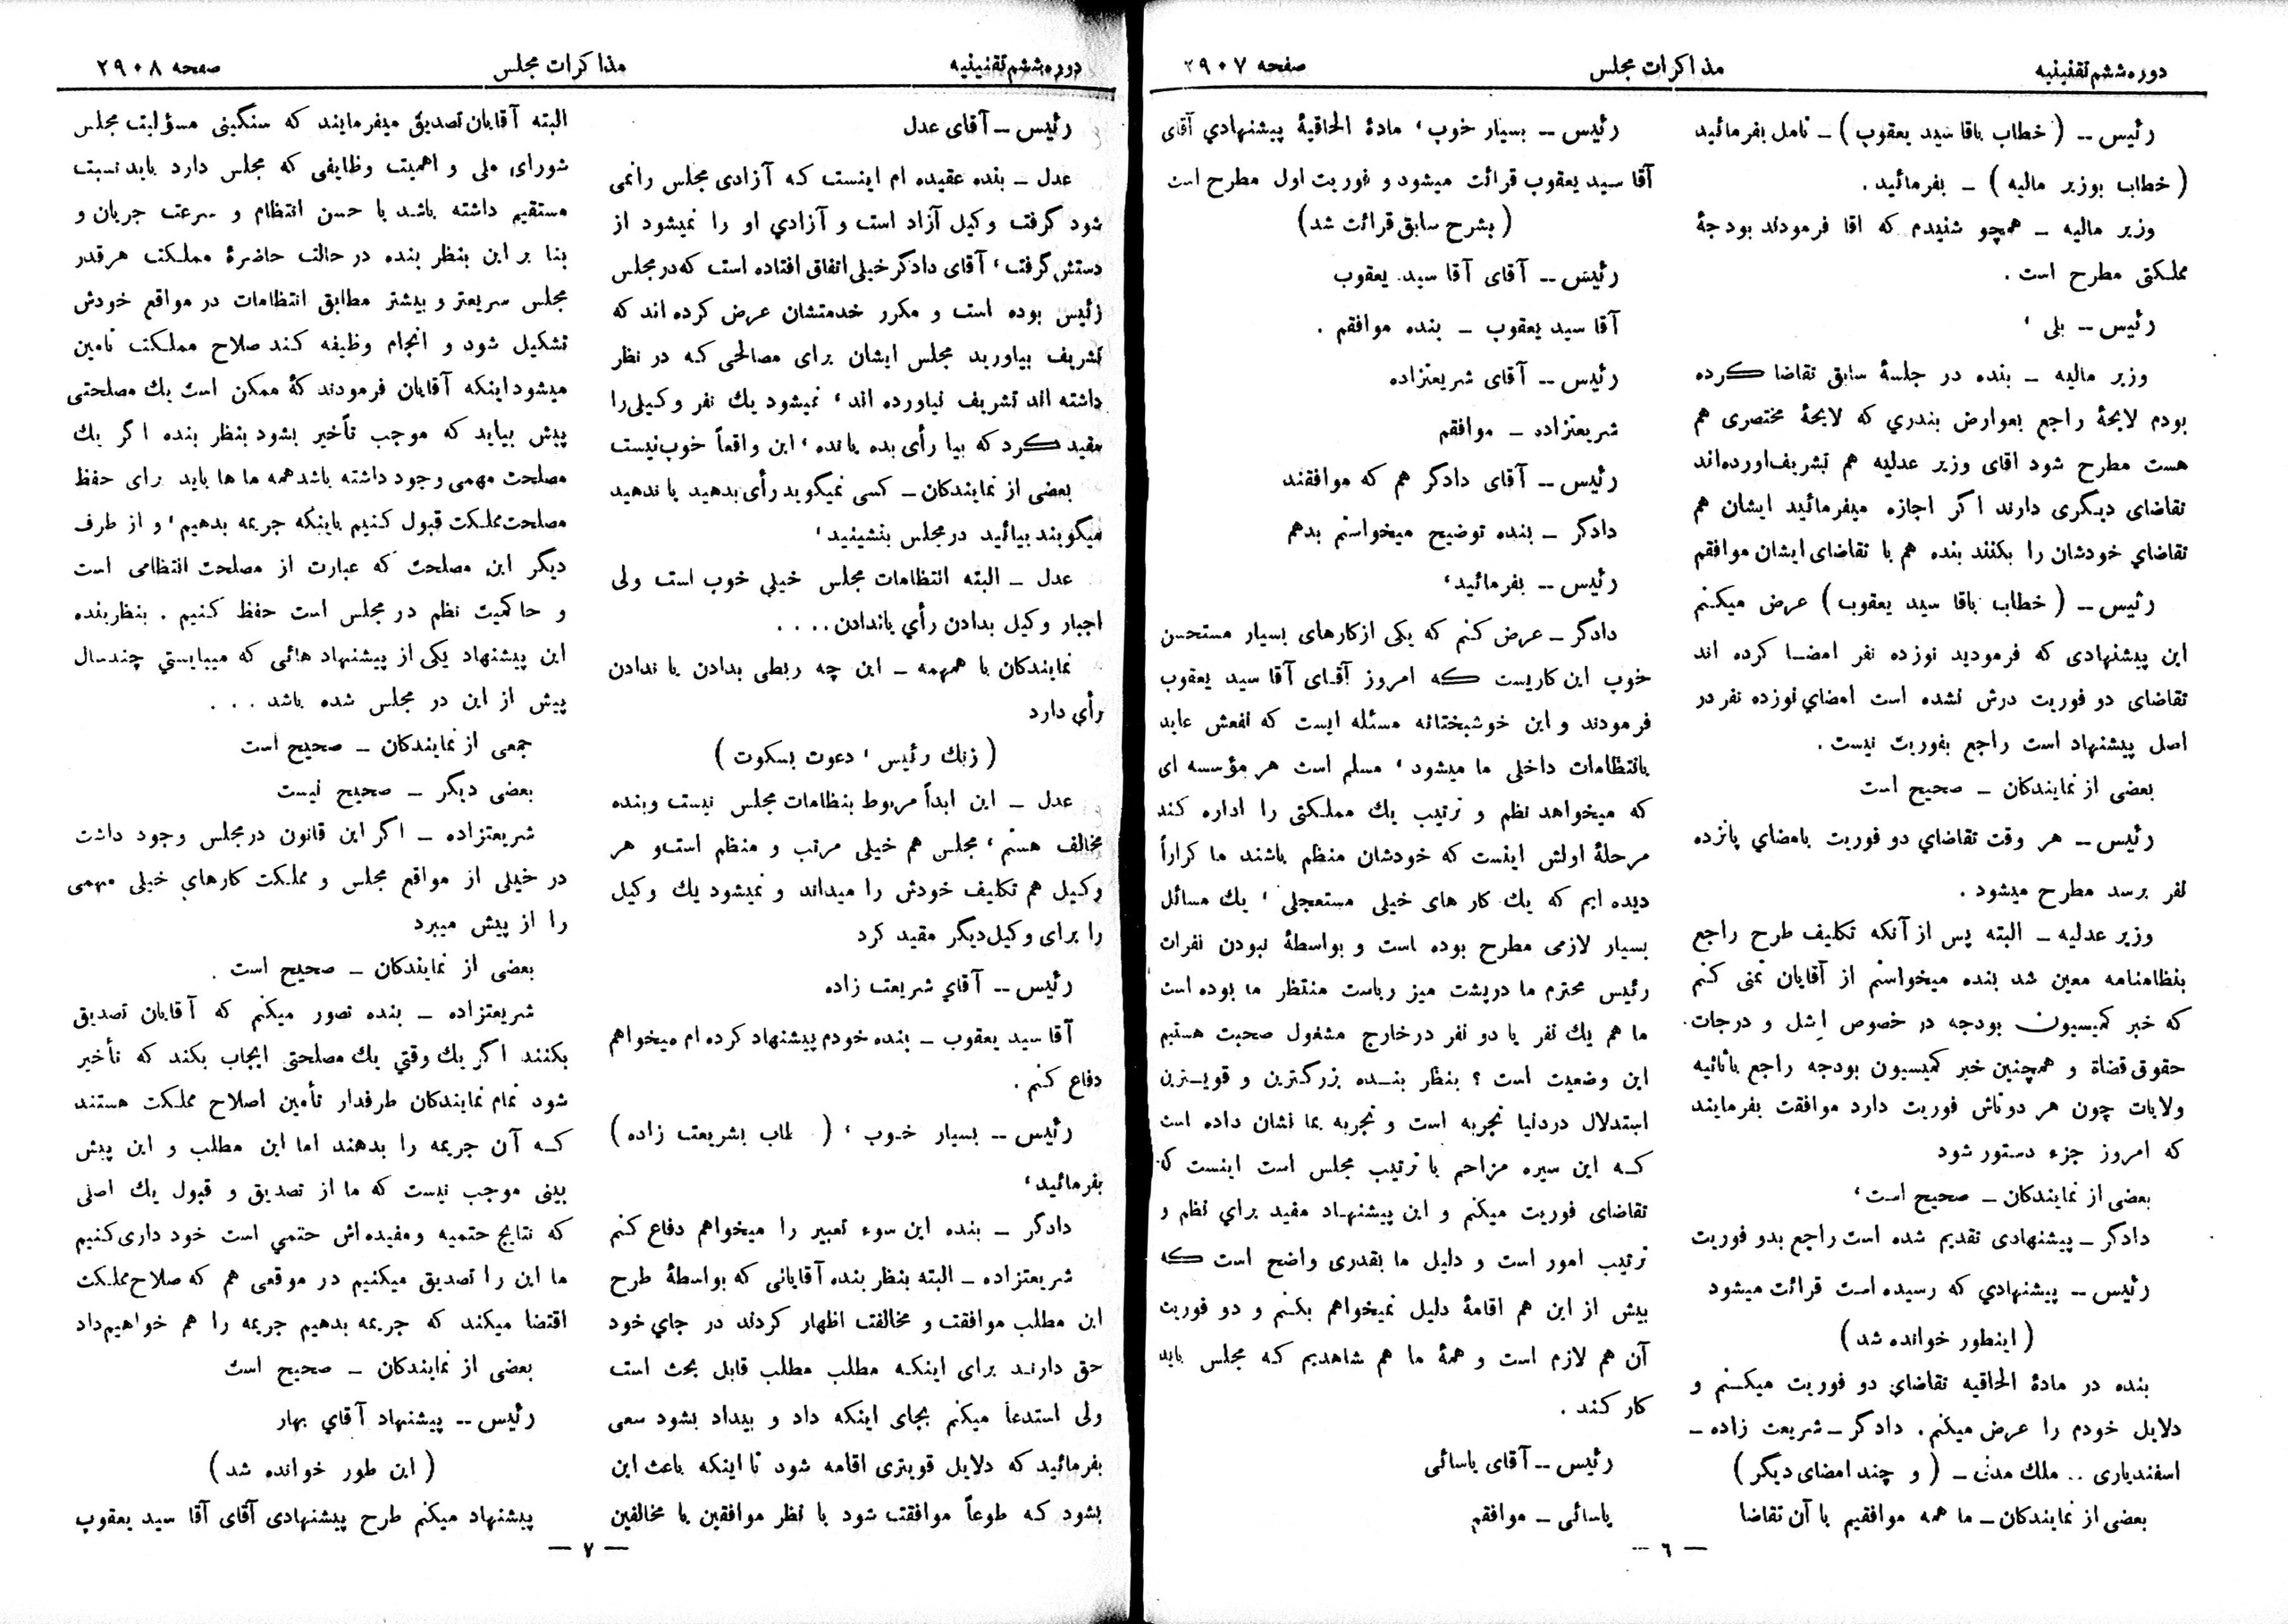 دوره ششم تقنینیه
مذاکرات مجلس
صفحه ۲۹۰۷
رئیس -- (خطاب باقا سید یعقوب) - تامل بفرمائید
(خطاب بوزیر مالیه) - بفرمائید.
وزیر مالیه - همچو شنیدم که اقا فرمودند بودجهٔ
مملکتی مطرح است.
رئیس -- بلی،
وزیر مالیه - بنده در جلسهٔ سابق تقاضا کرده
بودم لایحهٔ راجع بعوارض بندری که لایحهٔ مختصری هم
هست مطرح شود اقای وزیر عدلیه هم تشریف اورده‌اند
تقاضای دیگری دارند اگر اجازه میفرمائید ایشان هم
تقاضای خودشان را بکنند بنده هم با تقاضای ایشان موافقم
رئیس -- (خطاب باقا سید یعقوب) عرض میکنم
این پیشنهادی که فرمودید نوزده نفر امضا کرده اند
تقاضای دو فوریت درش نشده است امضای نوزده نفر در
اصل پیشنهاد است راجع بفوریت نیست.
بعضی از نمایندگان - صحیح است
رئیس -- هر وقت تقاضای دو فوریت بامضای پانزده
نفر برسد مطرح میشود.
وزیر عدلیه - البته پس از آنکه تکلیف طرح راجع
بنظامنامه معین شد بنده میخواستم از آقایان تمنی کنم
که خبر کمیسیون بودجه در خصوص اشل و درجات
حقوق قضاة و همچنین خبر کمیسیون بودجه راجع باثاثیه
ولایات چون هر دوتاش فوریت دارد موافقت بفرمایند
که امروز جزء دستور شود
بعضی از نمایندگان - صحیح است،
دادگر - پیشنهادی تقدیم شده است راجع بدو فوریت
رئیس -- پیشنهادی که رسیده است قرائت میشود
(اینطور خوانده شد)
بنده در مادهٔ الحاقیه تقاضای دو فوریت میکنم و
دلایل خودم را عرض میکنم. دادگر - شریعت زاده -
اسفندیاری .. ملك مدنی - (و چند امضای دیگر)
بعضی از نمایندگان - ما همه موافقیم با آن تقاضا
رئیس -- بسیار خوب، مادهٔ الحاقیهٔ پیشنهادی آقای
آقا سید یعقوب قرائت میشود و فوریت اول مطرح است
(بشرح سابق قرائت شد)
رئیس -- آقای آقا سید یعقوب
آقا سید یعقوب - بنده موافقم.
رئیس -- آقای شریعتزاده
شریعتزاده - موافقم
رئیس -- آقای دادگر هم که موافقند
دادگر - بنده توضیح میخواستم بدهم
رئیس -- بفرمائید،
دادگر - عرض کنم که یکی از کارهای بسیار مستحسن
خوب این کاریست که امروز آقای آقا سید یعقوب
فرمودند و این خوشبختانه مسئله ایست که نفعش عاید
بانتظامات داخلی ما میشود، مسلم است هر مؤسسه ای
که میخواهد نظم و ترتیب یك مملکتی را اداره کند
مرحلهٔ اولش اینست که خودشان منظم باشند ما کراراً
دیده ایم که یك کار های خیلی مستعجلی، یك مسائل
بسیار لازمی مطرح بوده است و بواسطهٔ نبودن نفرات
رئیس محترم ما در پشت میز ریاست منتظر ما بوده است
ما هم یك نفر یا دو نفر در خارج مشغول صحبت هستیم
این وضعیت است؟ بنظر بنده بزرگترین و قویترین
استدلال در دنیا تجربه است و تجربه بما نشان داده است
که این سیره مزاحم با ترتیب مجلس است اینست که
تقاضای فوریت میکنم و این پیشنهاد مفید برای نظم و
ترتیب امور است و دلیل ما بقدری واضح است که
بیش از این هم اقامهٔ دلیل نمیخواهم بکنم و دو فوریت
آن هم لازم است و همهٔ ما هم شاهدیم که مجلس باید
کار کند.
رئیس -- آقای یاسائی
یاسائی - موافقم
— ٦ —
دوره ششم تقنینیه
مذاکرات مجلس
صفحه ۲۹۰۸
رئیس - آقای عدل
عدل - بنده عقیده ام اینست که آزادی مجلس را نمی
شود گرفت وکیل آزاد است و آزادی او را نمیشود از
دستش گرفت، آقای دادگر خیلی اتفاق افتاده است که در مجلس
رئیس بوده است و مکرر خدمتشان عرض کرده اند که
تشریف بیاورید مجلس ایشان برای مصالحی که در نظر
داشته اند تشریف نیاورده اند، نمیشود یك نفر وکیلی را
مقید کرد که بیا رأی بده یا نده، این واقعاً خوب نیست
بعضی از نمایندگان - کسی نمیگوید رأی بدهید یا ندهید
میگویند بیائید در مجلس بنشینید،
عدل - البته انتظامات مجلس خیلی خوب است ولی
اجبار وکیل بدادن رأی یا ندادن....
نمایندگان با همهمه - این چه ربطی بدادن یا ندادن
رأی دارد
(زنك رئیس، دعوت بسکوت)
عدل - این ابداً مربوط بنظامات مجلس نیست و بنده
مخالف هستم، مجلس هم خیلی مرتب و منظم است و هر
وکیل هم تکلیف خودش را میداند و نمیشود یك وکیل
را برای وکیل دیگر مقید کرد
رئیس -- آقای شریعت زاده
آقا سید یعقوب - بنده خودم پیشنهاد کرده ام میخواهم
دفاع کنم.
رئیس -- بسیار خوب، ( طاب بشریعت زاده)
بفرمائید،
دادگر - بنده این سوء تعبیر را میخواهم دفاع کنم
شریعتزاده - البته بنظر بنده آقایانی که بواسطهٔ طرح
این مطلب موافقت و مخالفت اظهار کردند در جای خود
حق دارند برای اینکه مطلب مطلب قابل بحث است
ولی استدعا میکنم بجای اینکه داد و بیداد بشود سعی
بفرمائید که دلایل قویتری اقامه شود تا اینکه باعث این
بشود که طوعاً موافقت شود با نظر موافقین یا مخالفین
البته آقایان تصدیق میفرمایند که سنگینی مسؤلیت مجلس
شورای ملی و اهمیت وظایفی که مجلس دارد باید نسبت
مستقیم داشته باشد با حسن انتظام و سرعت جریان و
بنا بر این بنظر بنده در حالت حاضرهٔ مملکت هرقدر
مجلس سریعتر و بیشتر مطابق انتظامات در مواقع خودش
تشکیل شود و انجام وظیفه کند صلاح مملکت تامین
میشود اینکه آقایان فرمودند کهٔ ممکن است یك مصلحتی
پیش بیاید که موجب تأخیر بشود بنظر بنده اگر یك
مصلحت مهمی وجود داشته باشد همه ما ها باید برای حفظ
مصلحت مملکت قبول کنیم باینکه جریمه بدهیم، و از طرف
دیگر این مصلحت که عبارت از مصلحت انتظامی است
و حاکمیت نظم در مجلس است حفظ کنیم. بنظر بنده
این پیشنهاد یکی از پیشنهاد هائی که میبایستی چند سال
پیش از این در مجلس شده باشد...
جمعی از نمایندگان - صحیح است
بعضی دیگر - صحیح نیست
شریعتزاده - اگر این قانون در مجلس وجود داشت
در خیلی از مواقع مجلس و مملکت کارهای خیلی مهمی
را از پیش میبرد
بعضی از نمایندگان - صحیح است.
شریعتزاده - بنده تصور میکنم که آقایان تصدیق
بکنند اگر یك وقتی یك مصلحتی ایجاب بکند که تأخیر
شود تمام نمایندگان طرفدار تأمین اصلاح مملکت هستند
که آن جریمه را بدهند اما این مطلب و این پیش
بینی موجب نیست که ما از تصدیق و قبول یك اصلی
که نتایج حتمیه و مفیده اش حتمی است خود داری کنیم
ما این را تصدیق میکنیم در موقعی هم که صلاح مملکت
اقتضا میکند که جریمه بدهیم جریمه را هم خواهیم داد
بعضی از نمایندگان - صحیح است
رئیس -- پیشنهاد آقای بهار
(این طور خوانده شد)
پیشنهاد میکنم طرح پیشنهادی آقای آقا سید یعقوب
— ۷ —